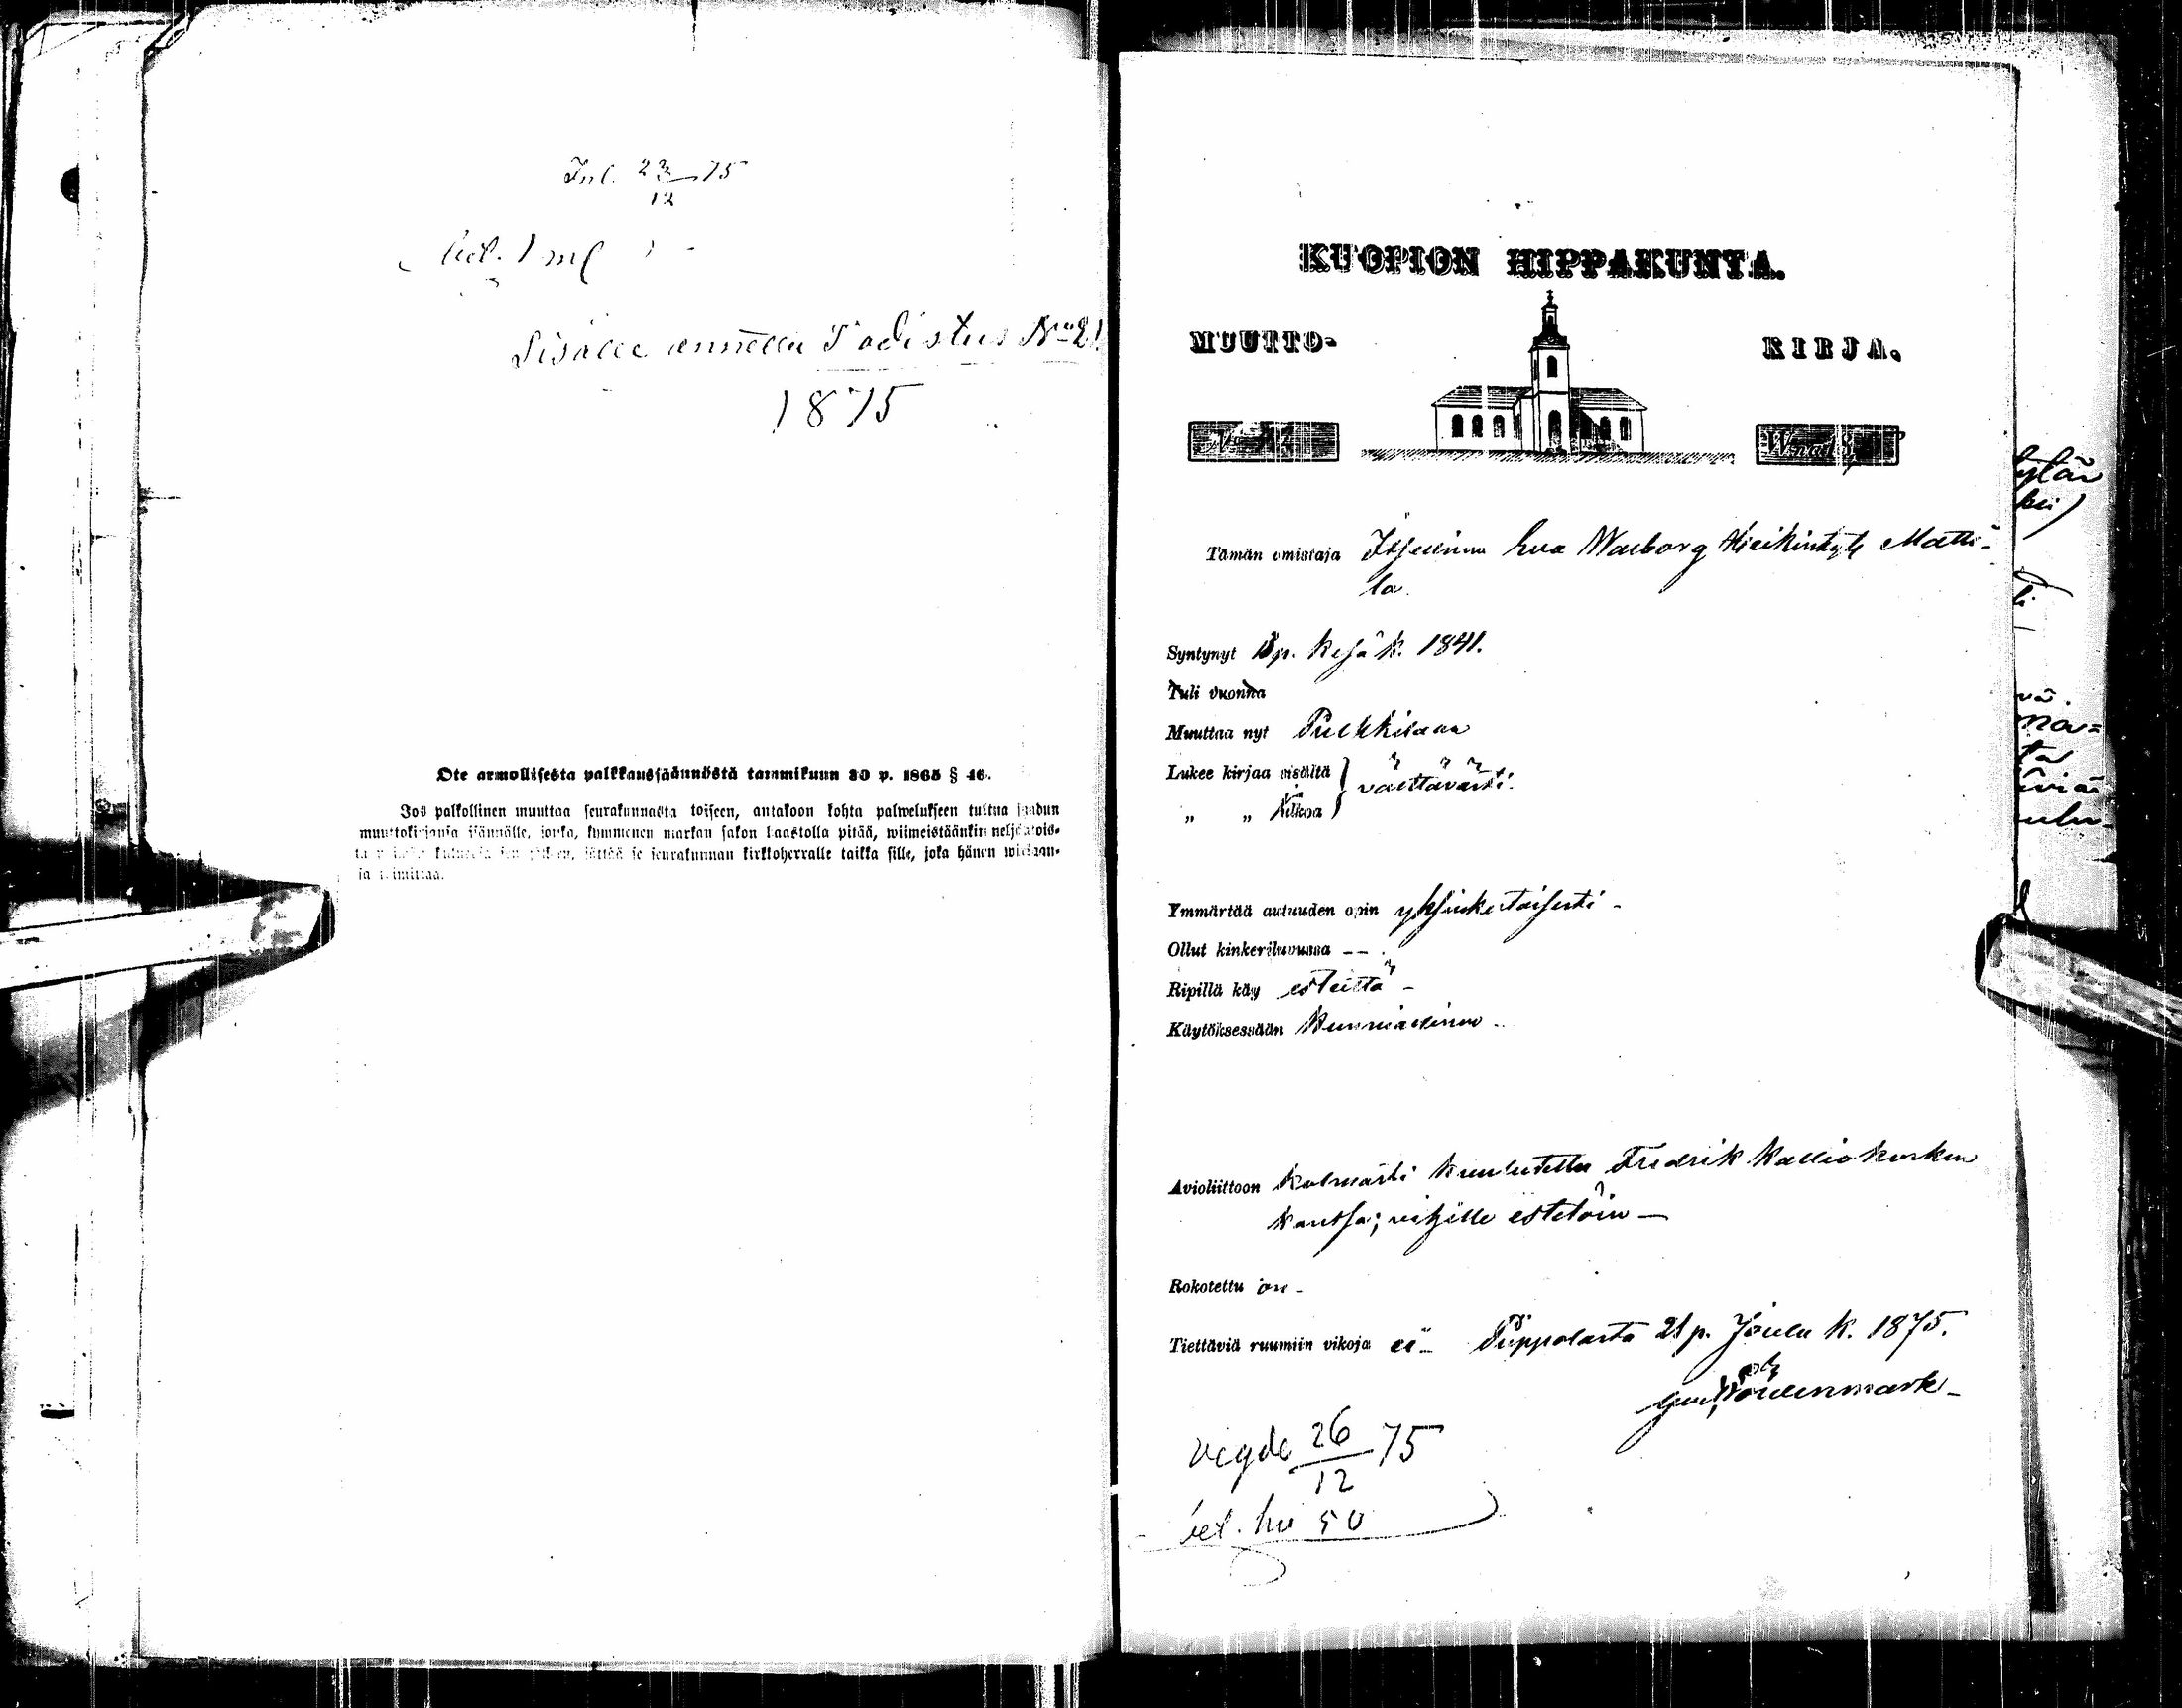 Inl. 23/12 75
bet. 1 mk
Sisälle annettu Todistus No 21
1875
Ote armollisesta palkkaussäännöstä tammikuun 30 p. 1865 § 46.
Jos palkollinen muuttaa seurakunnasta toiseen, antakoon kohta palwelukseen tultua saadun
muuttokirjansa isännälle, jonka, kymmenen markan sakon haastolla pitää, wiimeistäänkin neljätois-
jättää se seurakunnan kirkkoherralle taikka sille, joka hänen wirkaan-
sa toimittaa.
KUOPION HIPPAKUNTA.
MUUTTO- KIRJA.
No W:na 18
Tämän omistaja Itsellinen Eva Walborg Heikintytr Matti-
la.
Syntynyt 13 p. Kesäk. 1841.
Tuli vuonna
Muuttaa nyt Pulkkilaan
Lukee kirjaa sisältä } välttävästi.
„ „ ulkoa
Ymmärtää autuuden opin yksinkertaisesti -
Ollut kinkeriluvussa - -
Ripillä käy esteittä -
Käytöksessään kunniallinen -
Avioliittoon kolmasti kuulutettu Fredrik Kalliokosken
kanssa; vihille estetöin —
Rokotettu on -
Tiettäviä ruumiin vikoja ei - Pippolasta 21 p. Joulu k. 1875.
vigde 26/12 75
bet. hr 50
ytär
vä.
ma=
ta